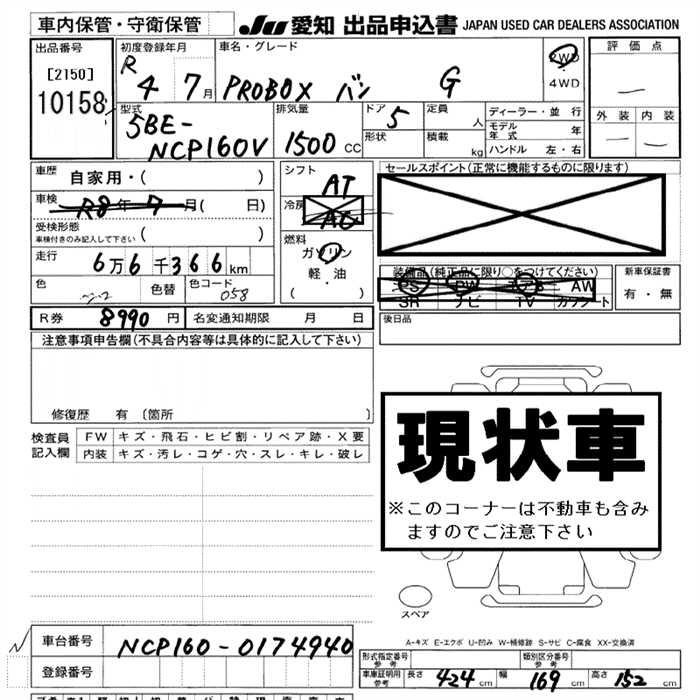 車内保管・守衛保管
JU 愛知 出品申込書 JAPAN USED CAR DEALERS ASSOCIATION
出品番号
[2150]
10158
初度登録年月
R 4 7月
車名・グレード
PROBOX バン G
2WD
・
4WD
評価点
—
外装 内装
— —
型式
5BE-
NCP160V
排気量
1500 CC
ドア
5
形状
定員
人
積載
kg
ディーラー・並行
モデル
年式 年
ハンドル 左・右
車歴
自家用・( )
車検
R8年7月( 日)
受検形態
車検付きのみ記入して下さい ( )
走行
6万6千366km
色
色替
色コード
058
シフト
AT
冷房
AC
燃料
ガソリン
軽・油
( )
セールスポイント(正常に機能するものに限ります)
装備品(純正品に限り○をつけてください)
PS PW エアB AW
SR ナビ TV カワシート
新車保証書
有・無
R券 8990円
名変通知期限 月 日
後日品
注意事項申告欄(不具合内容等は具体的に記入して下さい)
修復歴 有〔箇所 〕
検査員
記入欄
FW キズ・飛石・ヒビ割・リペア跡・X要
内装 キズ・汚レ・コゲ・穴・スレ・キレ・破レ
現状車
※このコーナーは不動車も含み
ますのでご注意下さい
スペア
A-キズ E-エクボ U-凹み W-補修跡 S-サビ C-腐食 XX-交換済
車台番号 NCP160-0174940
登録番号
形式指定番号
参考
類別区分番号
参考
車庫証明用
参考
長さ 424cm 幅 169cm 高さ 152cm